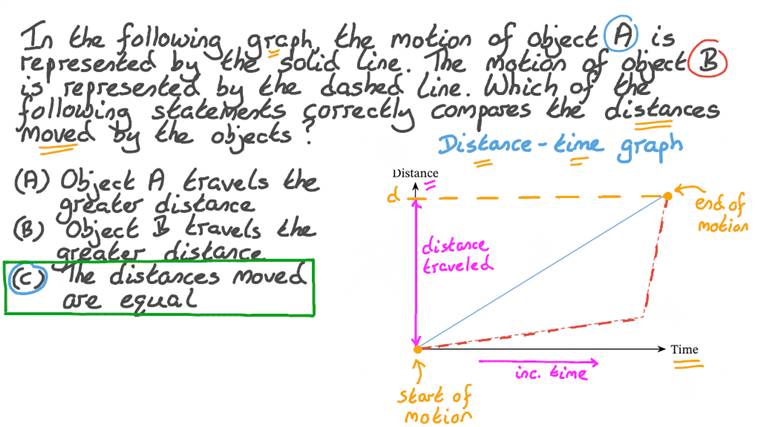 In the following graph, the motion of object A is
represented by the solid line. The motion of object B
is represented by the dashed line. Which of the
following statements correctly compares the distances
moved by the objects?
Distance-time graph
(A) Object A travels the
greater distance
(B) Object B travels the
greater distance
(C) The distances moved
are equal
Distance
d
end of
motion
distance
traveled
Time
inc. time
start of
motion